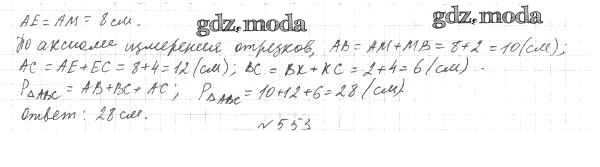 AE = AM = 8 см.
gdz.moda gdz.moda
По аксиоме измерения отрезков, AB = AM + MB = 8+2 = 10 (см);
AC = AE + EC = 8+4 = 12 (см); BC = BK + KC = 2+4 = 6 (см).
P△ABC = AB + BC + AC; P△ABC = 10+12+6 = 28 (см)
Ответ: 28 см.
№ 553